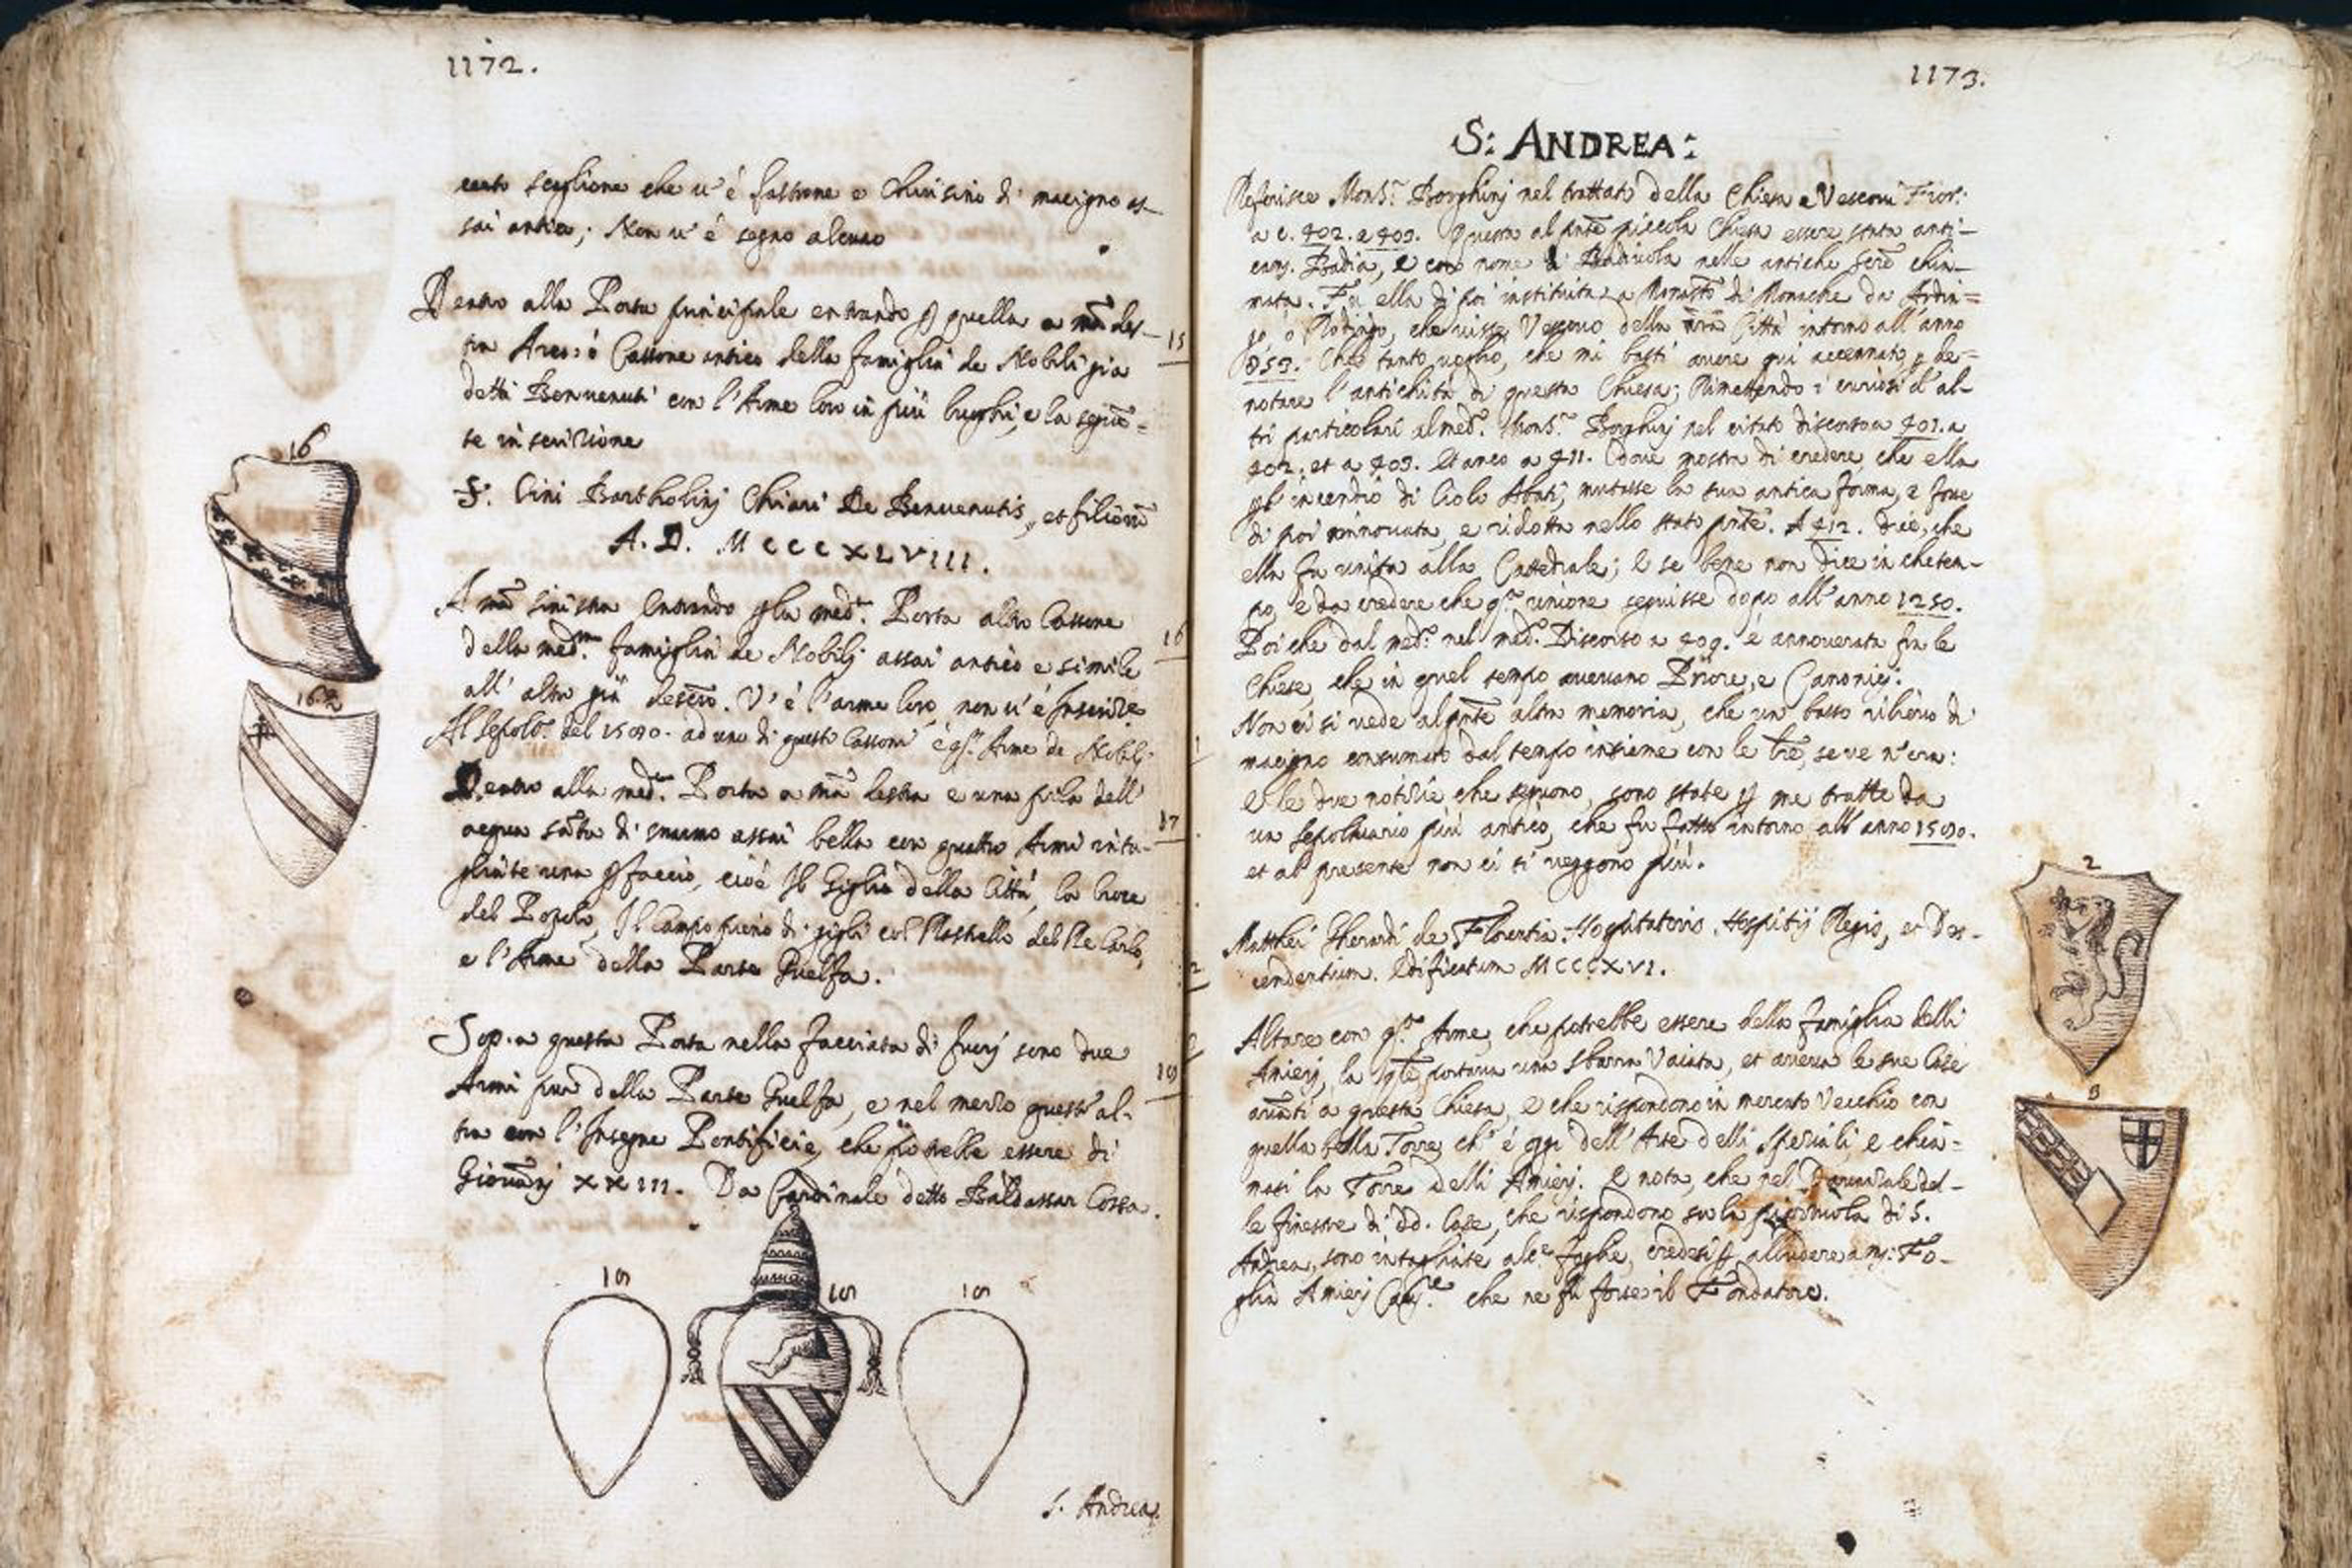 1172.
scaglione che v'è lastrone e chiusino di macigno as-
sai antico; Non v'è segno alcuno
Dentro alla Porta principale entrando p quella a mã des-
15
tra Arca, ò Cassone antico della famiglia de Nobili già
detti Benvenuti con l'Arme loro in più luoghi, e la seguẽ=
te inscrizione
S. Cini Bartholinj Chiari De Benvenutis, et filiorũ
A. D. MCCCXLVIII.
16
A mã sinistra Entrando p la medª. Porta altro Cassone
16
della medmª. famiglia de Nobilj assai antico e simile
all' altro già descrõ. V'è l'arme loro, non v'è Inscrizе
Al Sepolto. del 1590. ad uno di questi Cassoni è qsª. Arme de Nobilj.
16.2
Dentro alla medª. Porta a mã destra e una pila dell'
17
acqua sãta di marmo assai bella con quattro Armi inta-
gliate una p faccia, cioè Il Giglio della Città, la Croce
del Popolo, Il campo pieno di gigli col Rastrello del Re Carlo,
e l'Arme della Parte Guelfa.
Sop.a questa Porta nella facciata di fuorj sono due
Armi pur della Parte Guelfa, e nel mezzo quest' al-
tra con l'Insegne Pontificie, che potrebbe essere di
Giovãnj XXIII. Da Cardinale detto Baldassar Cossa.
S. Andrea.
1173.
S: ANDREA:
Referisce Monsr. Borghinj nel trattato della Chiesa e Vescovi Fior:
a c. 402. e 403. Questa al pñte piccola Chiesa essere stata anti-
cam. Badia, e con nome di Badiuola nelle antiche scrẽ chia-
mata. Fu ella di poi instituita a Monastõ di Monache da Ardin=
go, o Rodingo, che visse Vescovo della nrã Città intorno all' anno
notare l'antichità di questa Chiesa; Rimettendo i curiosi d'al-
tri particolari al medº. Monsr. Borghinj nel citato discorso a 401. a
402. et a 403. Et anco a 411. dove mostra di credere, che ella
p l'incendio di Ciolo Abati, mutasse la sua antica forma, e fosse
di poi rinnovata, e ridotta nello stato pñte. A 412. dice, che
ella fu unita alla Cattedrale; e se bene non dice in che tem-
po, è da credere che qsta unione seguisse dopo all' anno 1250.
Poiche dal medº. nel medº. Discorso a 409. è annoverata fra le
Chiese, che in quel tempo avevano Priore, e Canonici.
Non ci si vede al pñte altra memoria, che un basso rilievo di
1
macigno consumato dal tempo insieme con le trẽ, se ve n'era:
E le due notizie che seguono, sono state p me tratte da
un Sepoltuario più antico, che fu fatto intorno all' anno 1590.
et al presente non ci si veggono più.
2
Matthei Gherardi de Florentia Hospitatoris Hospitij Regis, et Des-
2
cendentium. Edificatum MCCCXVI.
Altare con qsta Arme, che potrebbe essere della famiglia delli
Amierj, la qle portava una sbarra Vaiata, et aveva le sue Case
avãti a questa Chiesa, e che rispondono in mercato Vecchio con
3
quella bella Torre, ch' è oggi dell' Arte delli Speziali e chia=
masi la Torre delli Amierj. E nota, che nel
le finestre di dd. Case, che rispondono su la di S.
Andrea, sono intagliate alce foglie, credesi p alludere a mj: Fo-
glia Amierj che ne fu forse il Fondatore.